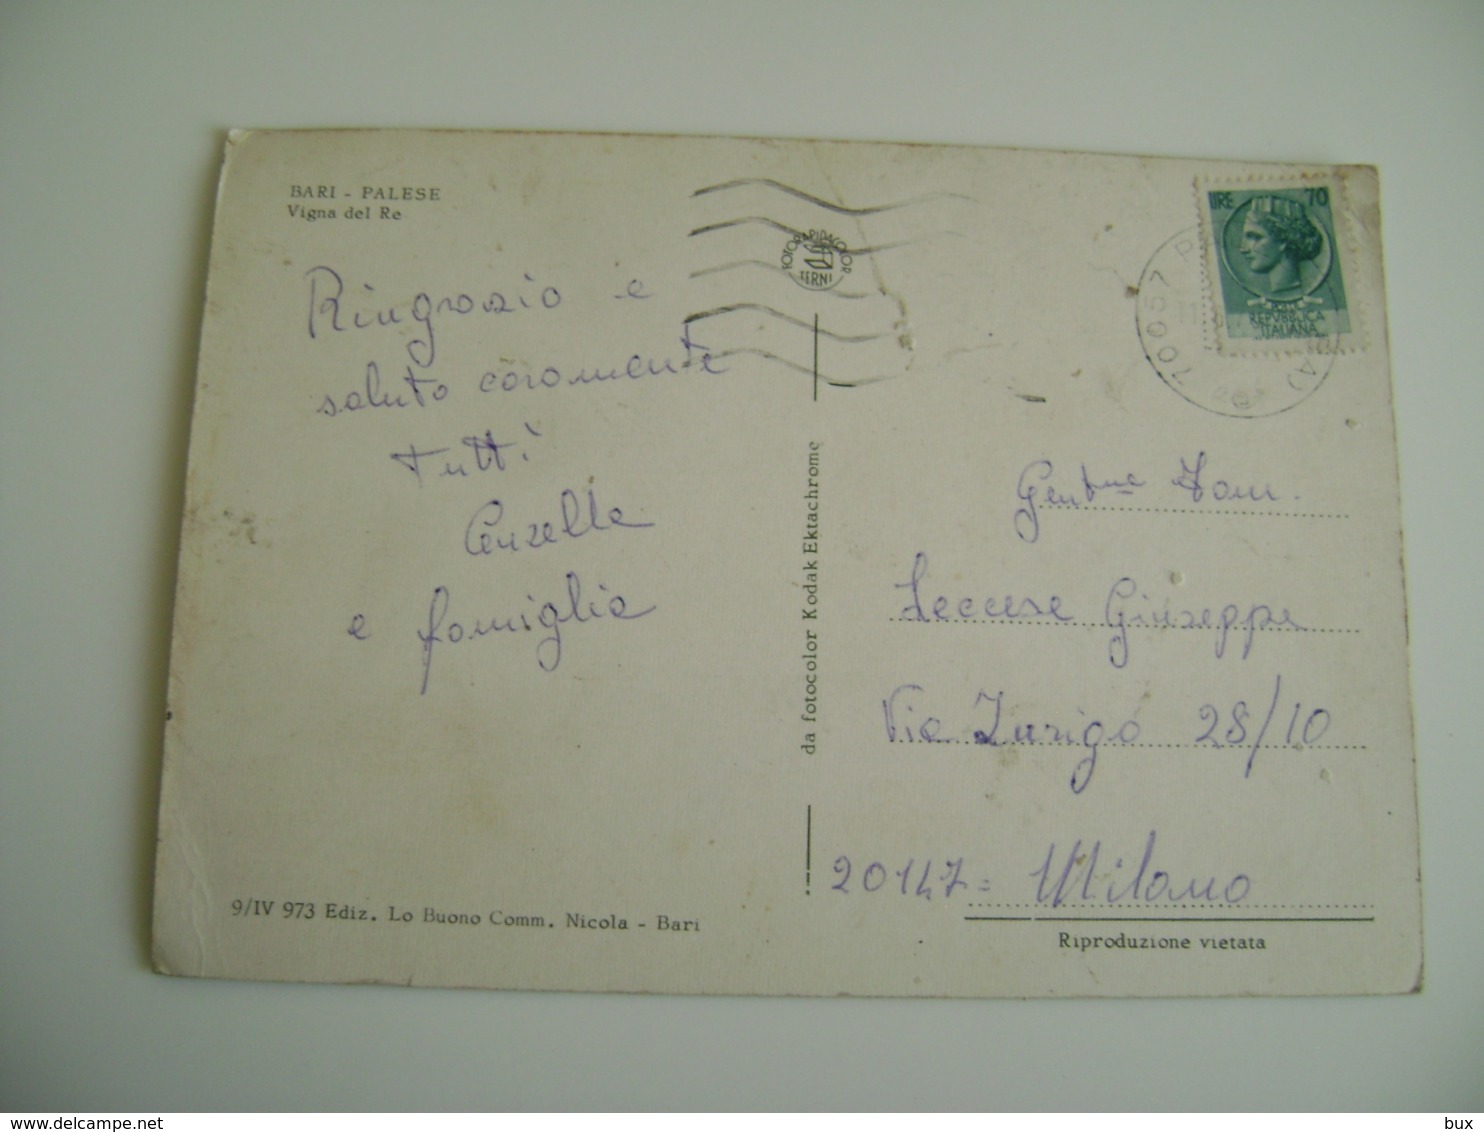 BARI - PALESE
Vigna del Re
Ringrazio e
saluto caramente
tutti
e famiglia
9/IV 973 Ediz. Lo Buono Comm. Nicola - Bari
FOTORAPIDACOLOR
TERNI
da fotocolor Kodak Ektachrome
LIRE 70
REPVBBLICA
ITALIANA
70057 P
Gent.ma Fam.
Leccese Giuseppe
Via Zurigo 28/10
20147 = Milano
Riproduzione vietata
www.delcampe.net
bux